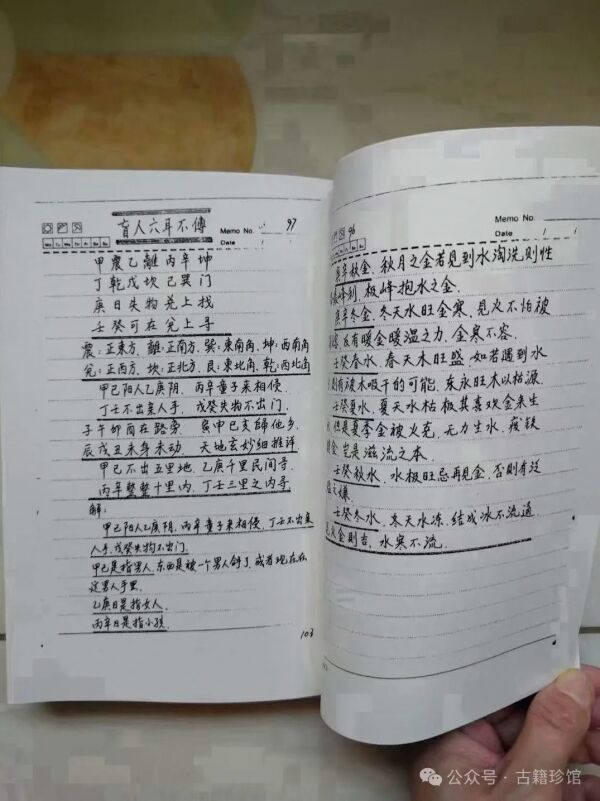 盲人六耳不傳
Memo No. 97
Date / /
Mo Tu We Th Fr Sa Su
甲震乙離丙辛坤
丁乾戊坎己巽门
庚日失物 兑上找
壬癸可在 兑上寻
震:正東方,離:正南方,巽:東南角,坤:西南角
兑:正西方,坎:正北方,艮:東北角,乾:西北角
甲己阳人乙庚阴,丙辛童子来相侵
丁壬不出亲人手,戊癸失物不出门
子午卯酉在路旁 寅申巳亥歸他乡
辰戌丑未身未动, 天地玄妙细推详
甲己不出五里地,乙庚千里民间寻
丙辛整整十里内,丁壬三里之内寻
解:
甲己阳人乙庚阴,丙辛童子来相侵,丁壬不出亲
人手,戊癸失物不出门
甲己是指男人,东西是被一个男人拿了,或者现在在
这男人手里.
乙庚日是指女人.
丙辛日是指小孩.
103
96
Memo No.
Date / /
庚辛秋金,秋月之金若见到水淘洗则性
峰利,极峰抱水之金.
庚辛冬金,冬天水旺金寒,见火不怕被
反有暖金暖温之力,金寒不容.
壬癸春水,春天木旺盛,如若遇到水
则有被木吸干的可能,东水旺木以枯源.
壬癸夏水,夏天水枯极其喜欢金来生
但是夏季金被火克,无力生水,
金岂是滋流之本.
壬癸秋水,水极旺忌再见金,否则有泛
之嫌.
壬癸冬水,冬天水冻,结成冰不流通
见火金则吉,水寒不流.
公众号·古籍珍馆